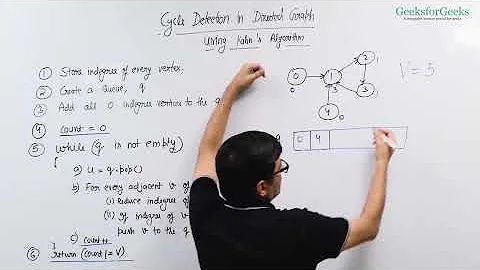 GeeksforGeeks
A computer science portal for geeks
Cycle Detection in Directed Graph
Using Kahn's Algorithm
① Store indegree of every vertex.
② Create a Queue, q
③ Add all 0 indegree vertices to the q
④ count = 0
⑤ while (q is not empty)
{
a) u = q.pop()
b) For every adjacent v of
(i) Reduce indegree of
(ii) If indegree of v
push v to the q
c) count++
⑥ return (count != V)
0
1
2
3
4
0
0
V = 5
0 4